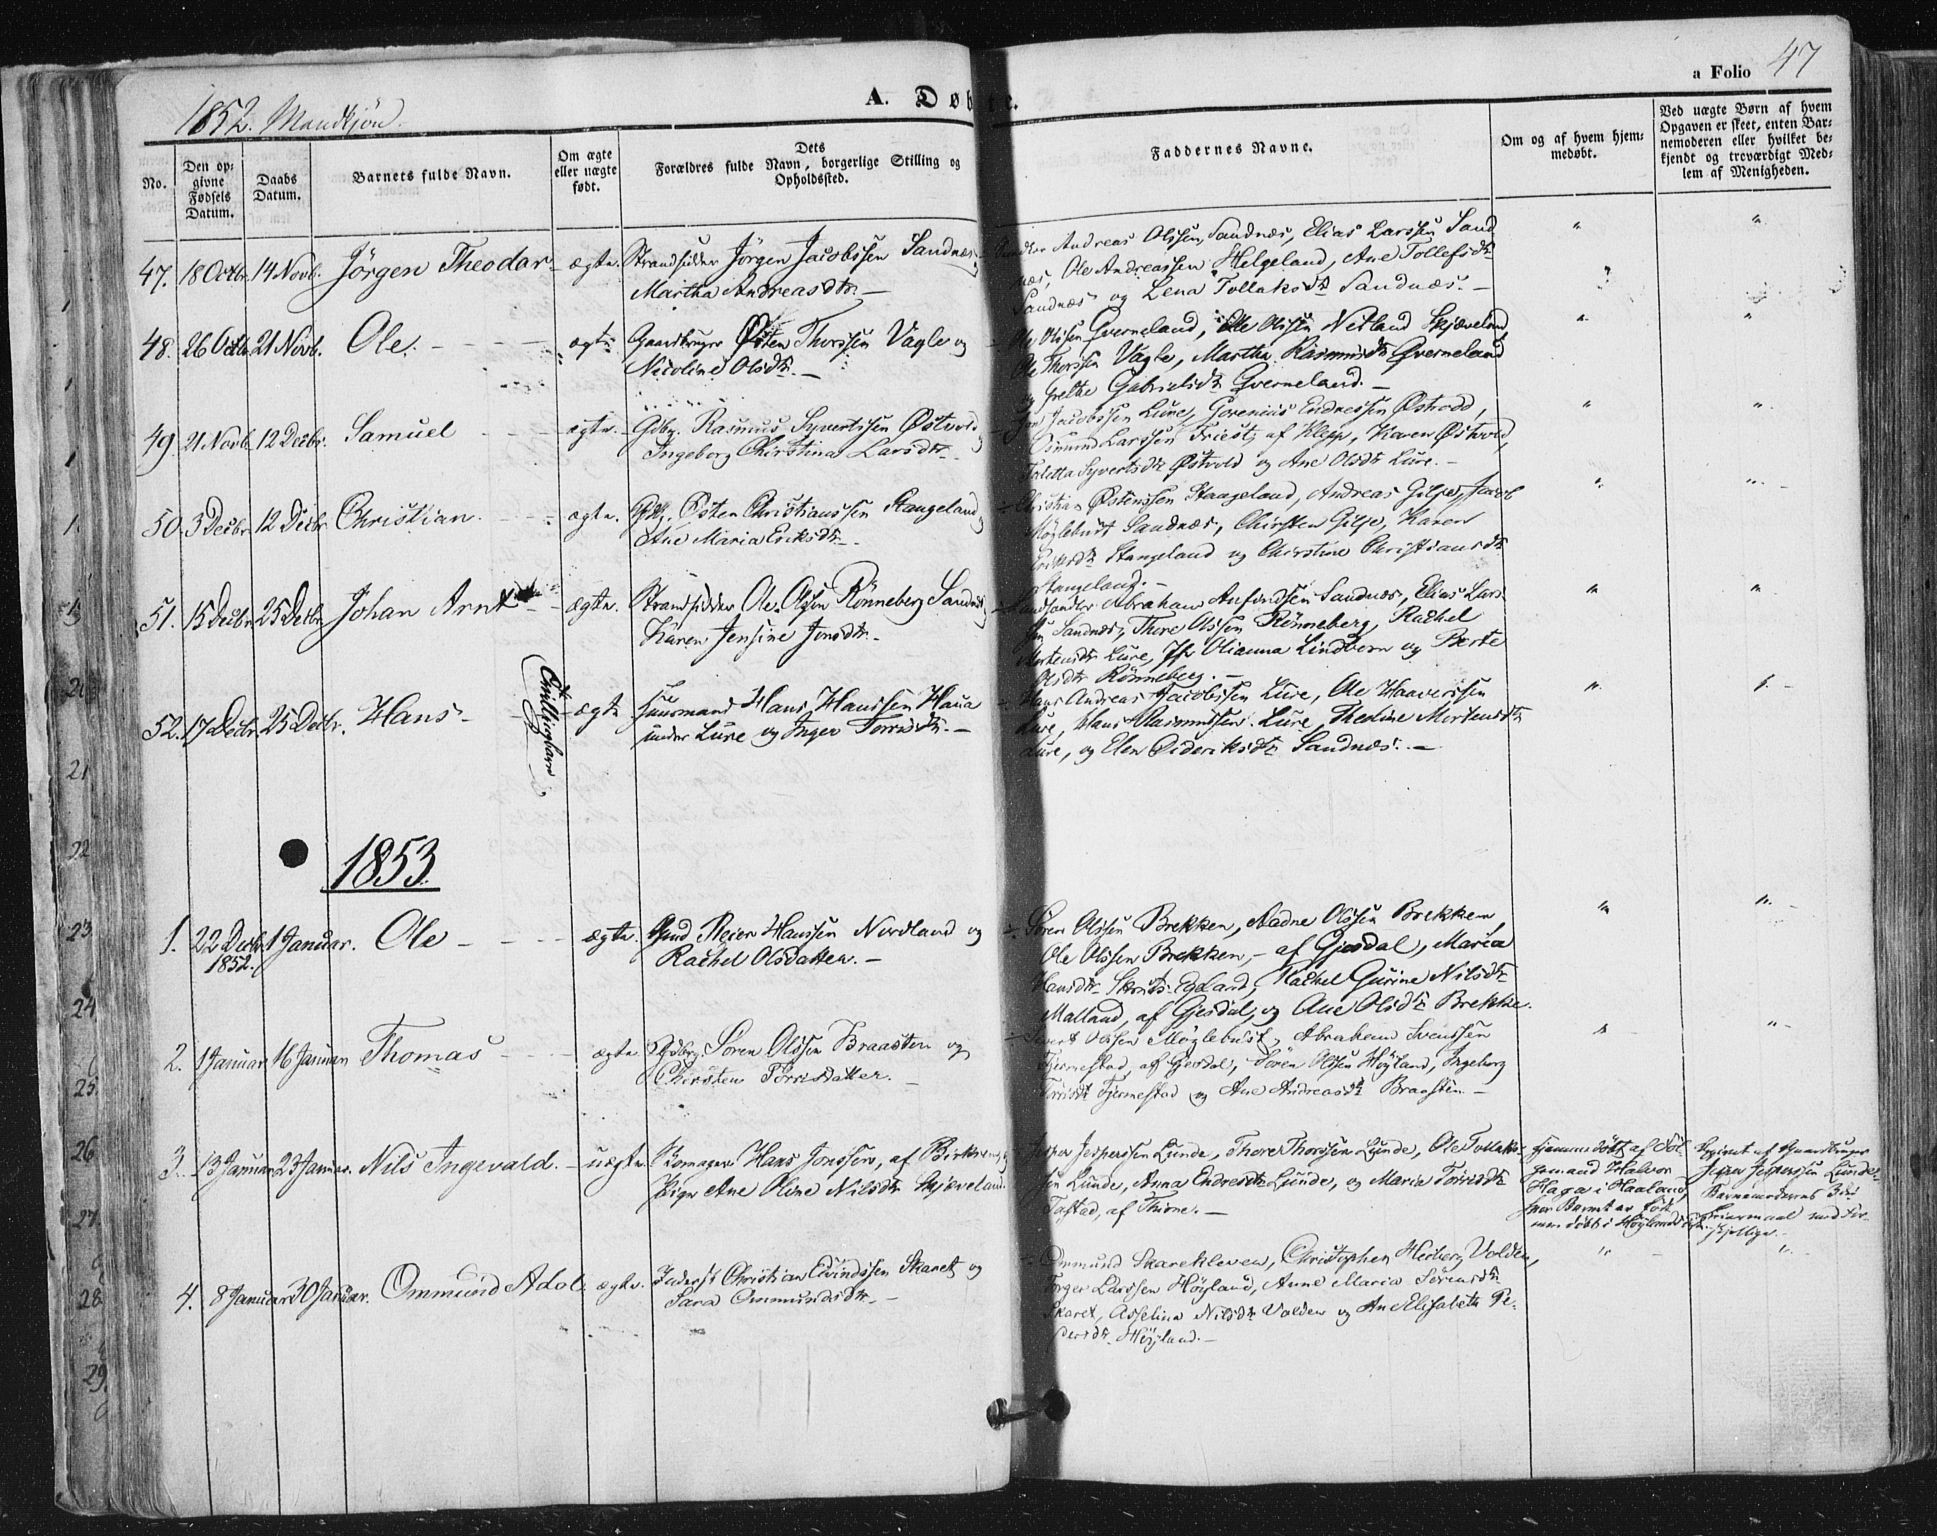 1852. Mandkjøn.
A. Døbte.
a Folio 47
No.
Den op-
givne
Fødsels
Datum.
Daabs
Datum.
Barnets fulde Navn.
Om ægte
eller uægte
født.
Dets
Forældres fulde Navn, borgerlige Stilling og
Opholdssted.
Faddernes Navne.
Om og af hvem hjem-
medøbt.
Ved uægte Børn af hvem
Opgaven er skeet, enten Bar-
nemoderen eller hvilket be-
kjendt og troværdigt Med-
lem af Menigheden.
47. 18 Octbr. 14 Novb. Jörgen Theodor ægte. Strandsidder Jörgen Jacobssen Sandnæs
Martha Andreasdtr. —
Andreas Olssen Sandnæs, Elias Larssen Sand-
næs, Ole Andreassen Helgeland, Ane Tollefsdtr
Sandnæs og Lena Tollaksdtr Sandnæs. —
48. 26 Octbr 21 Novb. Ole. ægte Gaardbruger Østen Thorssen Vagle og
Nicoline Olsdtr. —
Ole Olssen Qverneland, Ole Olssen Netland Skjæveland,
Ole Thorssen Vagle, Martha Rasmusdtr Qverneland
og Grethe Gabrielsdtr Qverneland. —
49 21 Novb. 12 Decbr. Samuel ægte. Gdbr. Rasmus Syvertssen Østvold
Ingeborg Chirstina Larsdtr. —
Jon Jacobssen Lure, Gorenius Endressen Østvold,
Osmund Larssen Friestj af Klepp, Karen Østvold,
Toletta Syvertsdtr Østvold og Ane Olsdtr Lure. —
50. 3 Decbr 12 Decbr. Christian. ægte. Gdb. Østen Christianssen Stangeland
Ane Maria Eriksdtr. —
Christian Østenssen Stangeland, Andreas Gilje, Jacob
Møglebust Sandnæs, Chirsten Gilje, Karen
Eriksdtr Stangeland og Christine Christiansdtr
Stangeland. —
51. 15 Decbr 25 Decbr Johan Arnt ægte. Strandsidder Ole Olssen Rönneberg Sandnæs
Karen Jensine Jonsdtr. —
Abraham Anfindsen Sandnæs, Elias Lars-
sen Sandnæs, Thore Olssen Rönneberg, Rachel
Mortensdtr Lure, Jfr Olianna Lindtvern og Berte
Olsdtr Rönneberg. —
52. 17 Decbr. 25 Decbr. Hans Omillinghave ægte Huusmand Hans Hanssen Haua
under Lure og Inger Torrisdtr. —
Hans Andreas Jacobssen Lure, Ole Haaverssen
Lure, Hans Rasmussen Lure, Thedine Mortensdtr
Lure, og Elen Dideriksdtr Sandnæs. —
1853
1. 22 Decbr. 1 Januar. Ole ægte. Gmd. Peier Hanssen Nordland og
1852.
Rachel Olsdatter. —
Sören Olssen Brekken, Aadne Olssen Brekken,
Ole Olssen Brekken, — af Gjesdal, Maria
Hansdtr Skruts-Egeland, Rachel Gurine Nilsdtr
Malland, af Gjesdal, og Ane Olsdtr Brekke.
2. 1 Januar 16 Januar Thomas ægte Gdbrg. Sören Olssen Braasten og
Chirsten Torrisdatter. —
Sivert Olssen Møglebust, Abraham Svenssen
Fjermestad, af Gjesdal, Sören Olssen Höyland, Ingeborg
Torrisdtr Fjermestad og Ane Andreasdtr Braasten —
3. 13 Januar 23 Januar. Nils Ingevald. uægte. Skomager Hans Jonssen, af Birkreim og
Pige Ane Oline Nilsdtr Skjæveland.
Jesper Jesperssen Lunde, Thore Thorssen Lunde, Ole Tollaks-
sen Lunde, Anna Endresdtr Lunde, og Maria Torrisdtr
Tastad, af Thime. —
Hjemmedöbt af Sol-
gemand Halvor
Haga i Haaland,
hvor Barnet er født
men döbt i Höylands Kirke.
Opgivet af Gaardbruger
Jesper Jesperssen Lunde.
Barnemoderens 3die
Leiermaal med for-
skjellige. —
4. 8 Januar 30 Januar. Ommund Adol. ægte. Inderst Christian Edvindssen Skaret og
Sara Ommundsdtr. —
Ommund Skarekleven, Christopher Hesberg Volden,
Torger Larssen Höyland, Anne Maria Sörensdtr
Skaret, Asselina Nilsdtr Volden og An Elisabeth Pe-
dersdtr Höyland. —